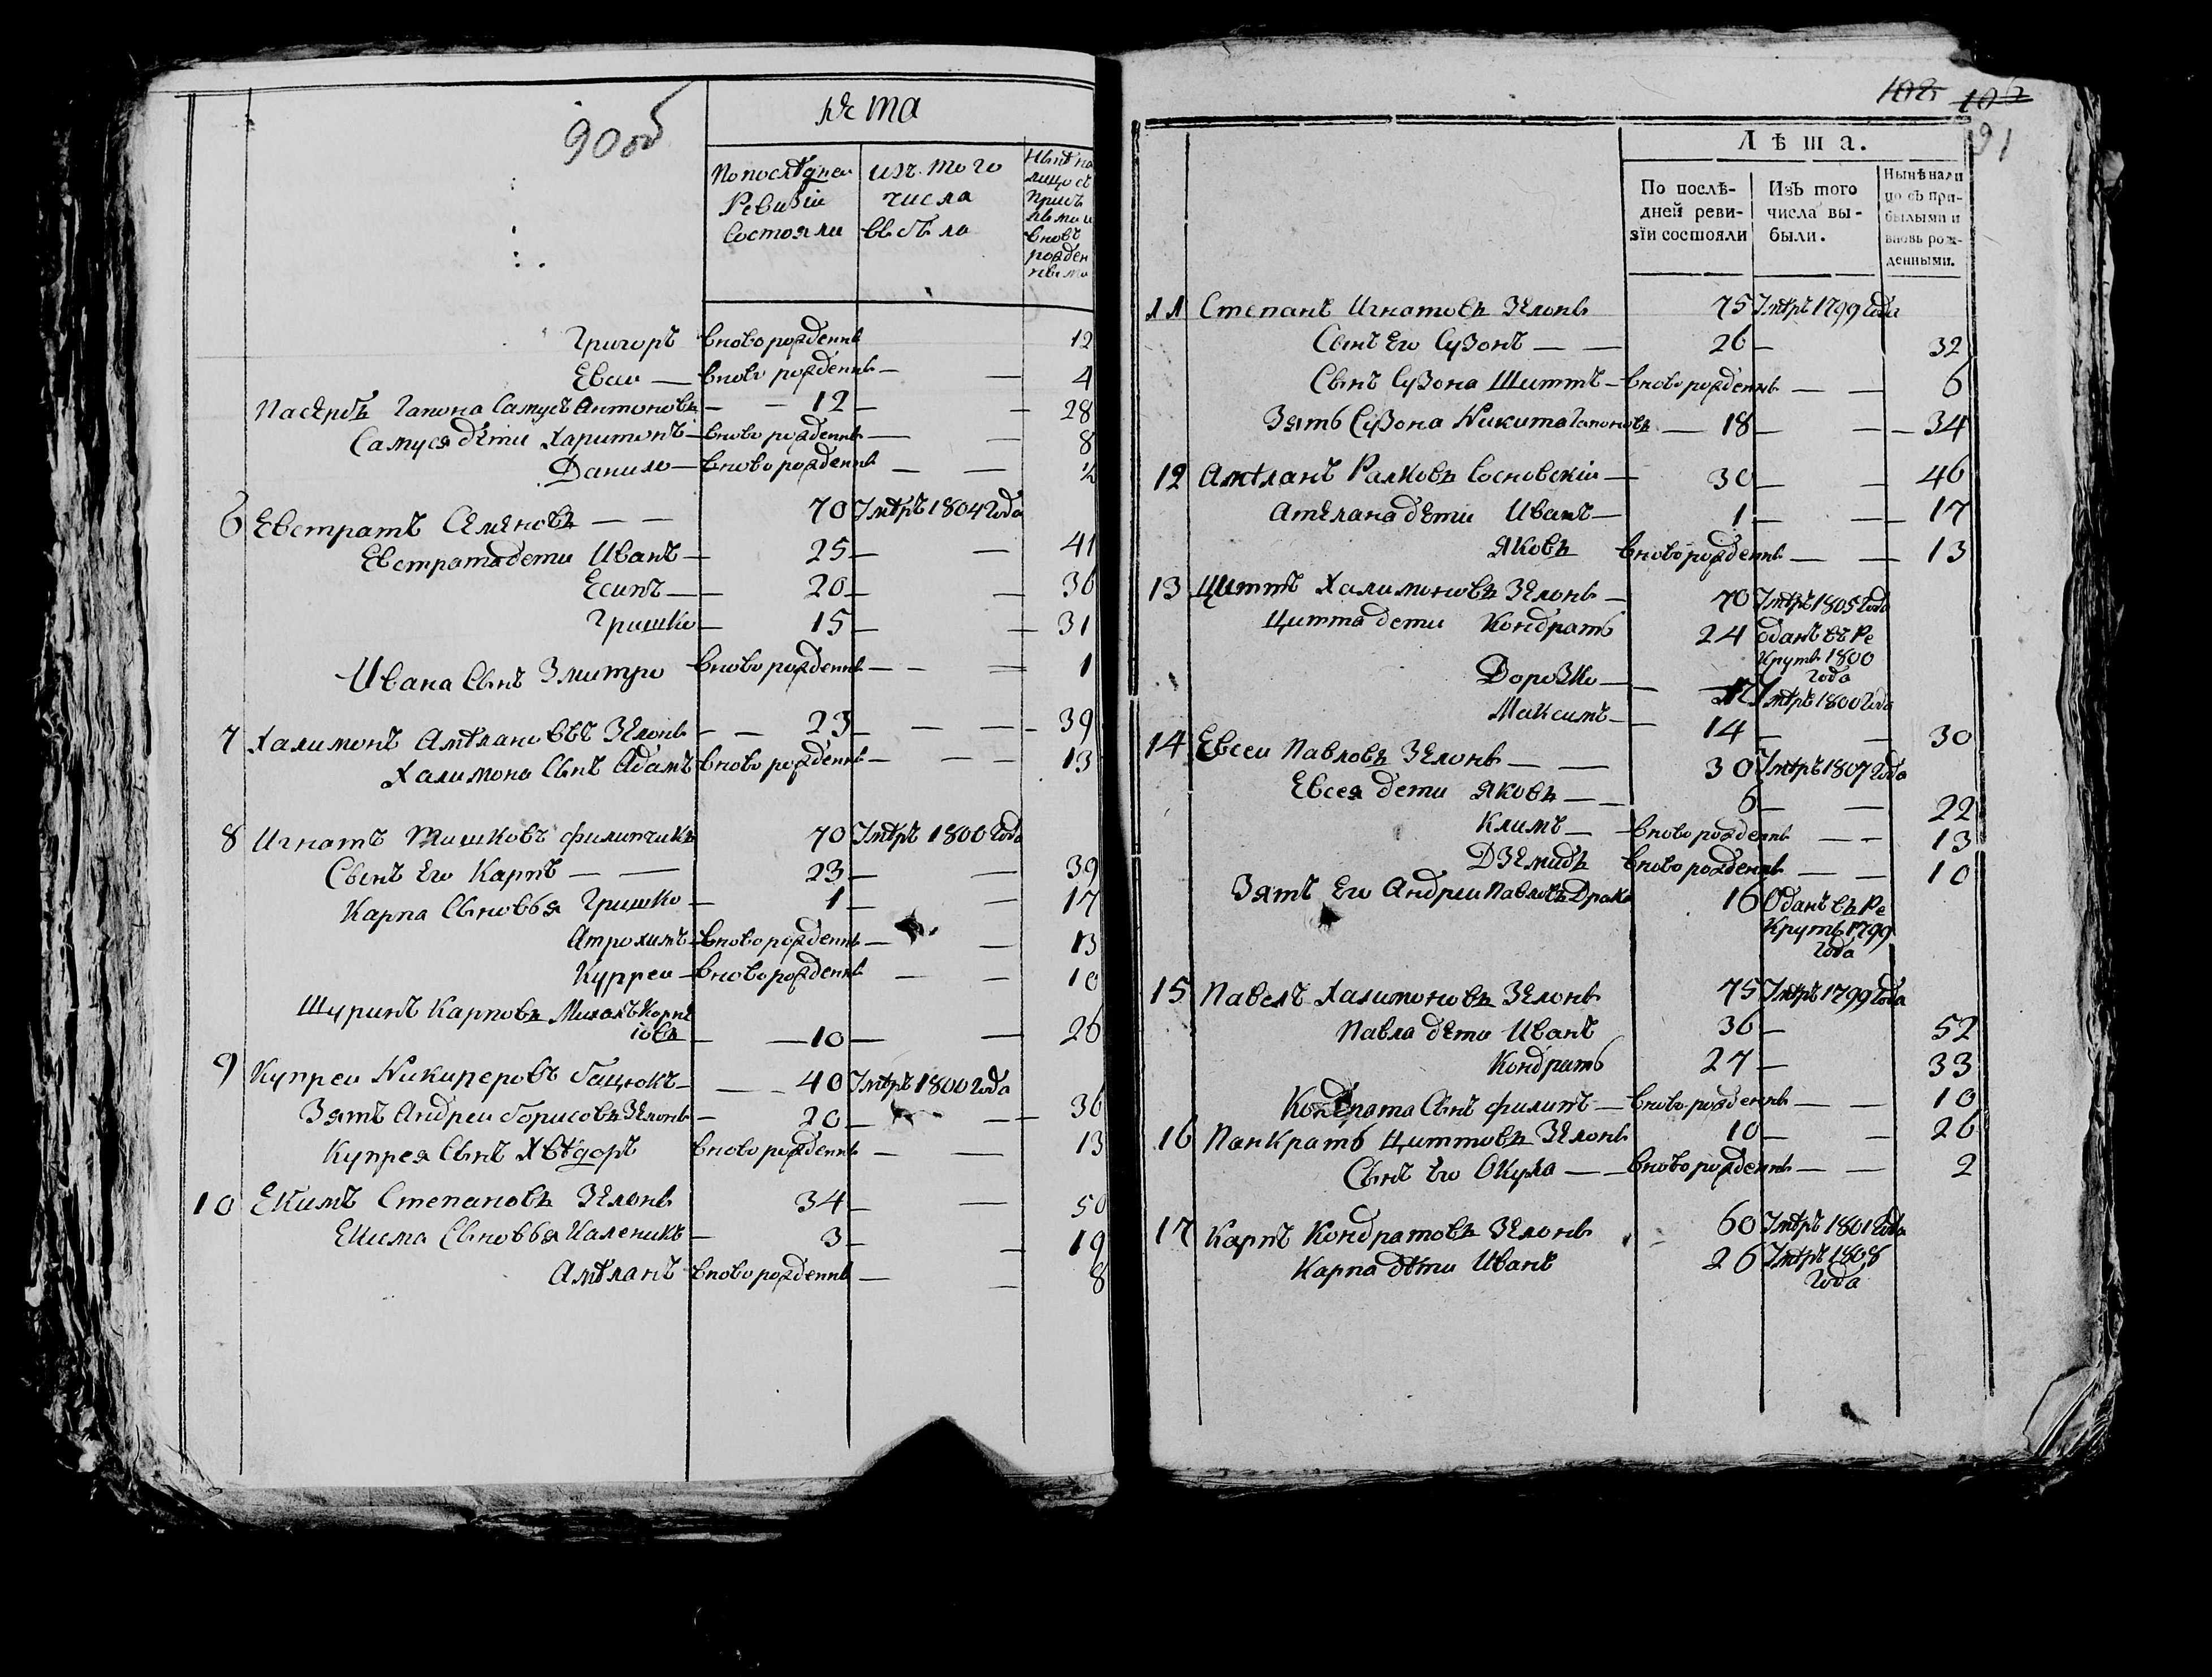 90 об
лѣта
Попослѣднеи Ревизіи Состояли
изъ того числа выбыло
Григоръ вноворожденны 12
Евсеи — вново рожденны — — 4
Пасербъ Гапона Самусъ Антоновъ — — 12 — — 28
Самуся дѣти Харитонъ — вново рожденны — — 8
Данило — вново рожденны — —
6 Евстратъ Семеновъ — — 70 Умѣръ 1804 Года
Евстрата дети Иванъ — 25 — — 41
Есипъ — 20 — — 36
Гришко — 15 — — 31
Ивана Сынъ Змитро вново рожденны — — 1
7 Халимонъ Амеляновъ Зелоны — — 23 — — 39
Халимона Сынъ Адамъ вново рожденны — — 13
8 Игнатъ Тишковъ филипчикъ 70 Умѣръ 1800 Года
Сынъ Его Карпъ — — 23 — — 39
Карпа Сыновья Гришко — 1 — — 17
Атрохимъ — вново рожденны — — 13
Купреи — вново рожденны — — 10
Шуринъ Карповъ Михалъ Корнѣ
іовъ — — 10 — — 26
9 Купреи Никиперовъ бацюкъ — — 40 Умѣръ 1800 года
Зять Андреи борисовъ Зелоны — 20 — — 36
Купрея Сынъ Хвѣдоръ вново рожденны — — 13
10 Екимъ Степановъ Зелоны 34 — — 50
Екима Сыновья Каленикъ — 3 — — 19
Амѣлянъ вново рожденны — — 8
91
Лѣта.
По послѣ-
дней реви-
зїи состояли
Изъ того
числа вы-
были.
Нынѣ нали
цо съ при-
былыми и
вновь рож-
денными.
11 Степанъ Игнатовъ Зелоны 75 Умѣръ 1799 Года
Сынъ Его Сузонъ — — 26 — 32
Сынъ Сузона Циттъ — вново рожденны — — 6
Зять Сузона Никита Гапоновъ — 18 — — 34
12 Амѣлянъ Ралковъ Сосновскіи — 30 — — 46
Амеляна дѣти Иванъ — 1 — — 17
Яковъ вново рожденны — — 13
13 Циттъ Халимоновъ Зелоны — 70 Умѣръ 1805 Года
Цитта дети Кондратъ 24 Одань въ Ре
круты 1800
года
Дорошко — — Умѣръ 1800 Года
Максимъ — 14 — — 30
14 Евсеи Павловъ Зелоны — — 30 Умѣръ 1807 Года
Евсея дети Яковъ — — 6 — — 22
Климъ — вново рожденны — — 13
Дземидъ вново рожденны — — 10
Зять Его Андреи Павловъ Драко 16 Одань въ Ре
круты 1799
Года
15 Павелъ Халимоновъ Зелоны 75 Умѣръ 1799 Года
Павла дѣти Иванъ 36 — 52
Кондратъ 27 — 33
Кондрата Сынъ филипъ — вново рожденны — — 10
16 Панкратъ Циттовъ Зелоны 10 — — 26
Сынъ Его Окула — — вново рожденны — — 2
17 Карпъ Кондратовъ Зелоны 60 Умѣръ 1801 Года
Карпа дѣти Иванъ 26 Умѣръ 1808
Года